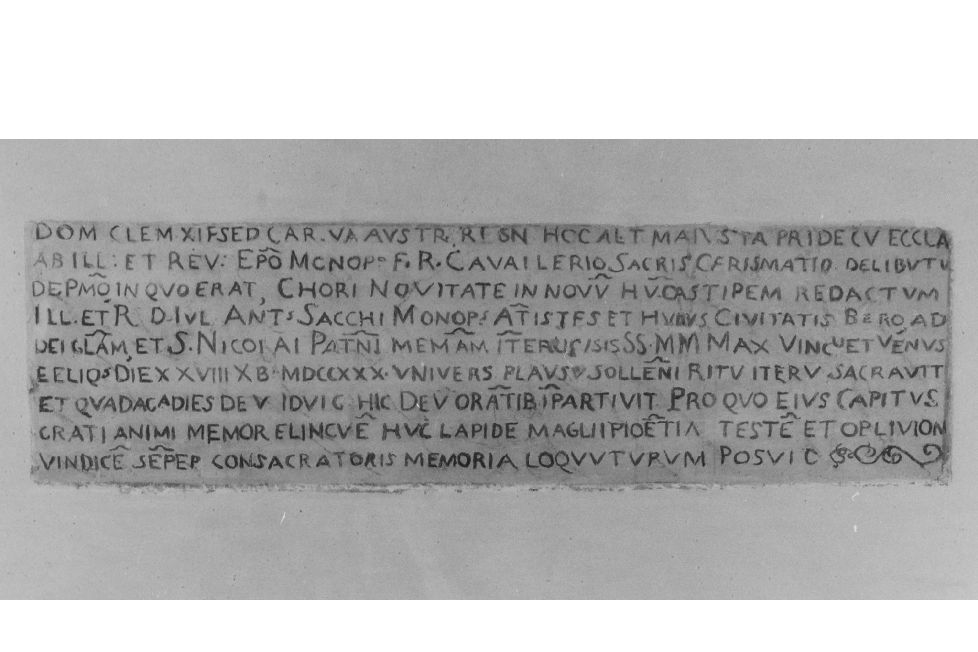 DOM CLEM XI FSED CAR. VA AVSTR. REGN HOC ALT MAIVSTA PRIDE CV ECCLA
AB ILL: ET REV: EP̄O MONOP: F. R. CAVAILERIO SACRIS CFRISMATIO DELIBUTU
DEPMŌ IN QVO ERAT, CHORI NOVITATE IN NOVV̄ HV̄C ASTIPEM REDACTVM
ILL. ET R D. IVL ANTS SACCHI MONOPS AT̄ISTES ET HUIUS CIVITATIS BERO AD
DEI GLĀM ET S. NICOLAI PATN̄I MEMĀM IT̄ERU SS. MM MAX VINC ET VENVS
DIE XXVIII XB. MDCCXXX. VNIVERS PLAVSV SOLLEN̄I RITV ITERV SACRAVIT
ET QVADAGA DIES DE V IDVIG HIC DEV ORAT̄IB IP̄ARTIVIT PRO QVO EIVS CAPITVS
GRATI ANIMI MEMOR ELINCVĒ HVC LAPIDE TESTĒ ET OPLIVION
VINDICĒ SĒPER CONSACRATORIS MEMORIA LOQVVTVRVM POSVIC